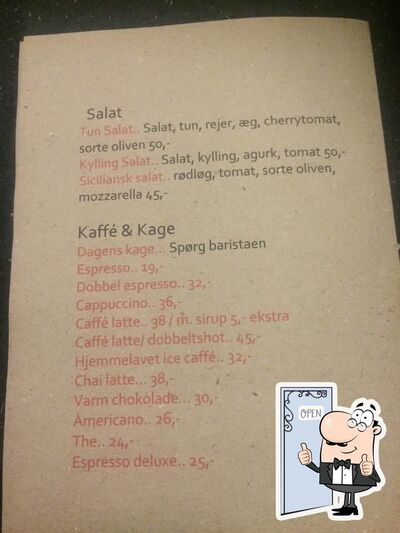 Salat
Tun Salat.. Salat, tun, rejer, æg, cherrytomat,
sorte oliven 50,-
Kylling Salat.. Salat, kylling, agurk, tomat 50,-
Siciliansk salat.. rødløg, tomat, sorte oliven,
mozzarella 45,-
Kaffé & Kage
Dagens kage... Spørg baristaen
Espresso.. 19,-
Dobbel espresso.. 32,-
Cappuccino.. 36,-
Caffé latte.. 38 / m. sirup 5,- ekstra
Caffé latte/ dobbeltshot.. 45,-
Hjemmelavet ice caffé.. 32,-
Chai latte... 38,-
Varm chokolade... 30,-
Americano.. 26,-
The.. 24,-
Espresso deluxe.. 25,-
OPEN